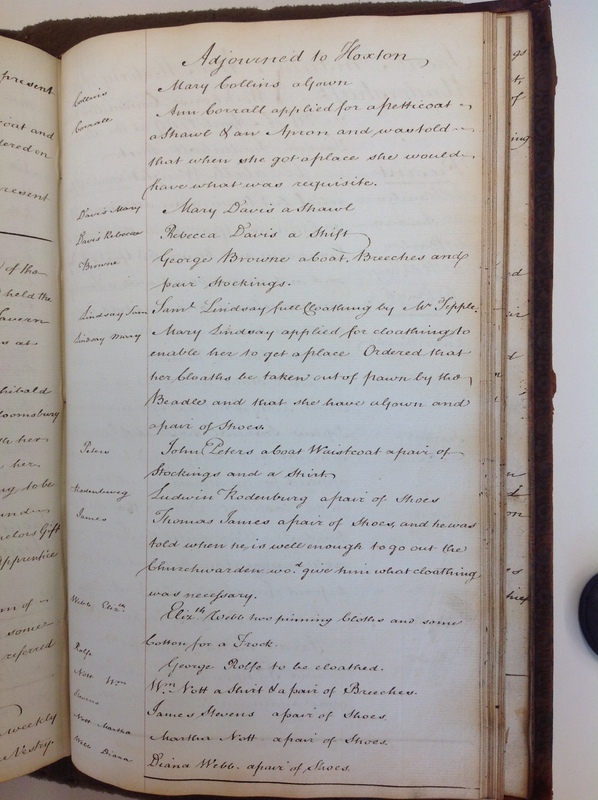 Adjourned to Hoxton
Collins
Mary Collins a Gown
Corrall
Ann Corrall applied for a petticoat
a Shawl & an Apron and was told
that when she got a place she would
have what was requisite.
Davis Mary
Mary Davis a Shawl
Davis Rebecca
Rebecca Davis a Shift
Browne
George Browne a Coat, Breeches and
pair Stockings.
Lindsay Sam
Saml Lindsay full Cloathing by Mr Tipple.
Lindsay Mary
Mary Lindsay applied for cloathing to
enable her to get a place Ordered that
her Cloaths be taken out of pawn by the
Beadle and that she have a Gown and
a pair of Shoes.
Peters
John Peters a Coat Waistcoat a pair of
Stockings and a Shirt
Rodenburg
Ludwin Rodenburg a pair of Shoes
James
Thomas James a pair of Shoes, and he was
told when he is well enough to go out the
Churchwarden wod. give him what cloathing
was necessary.
Webb Elizth
Elizth Webb two pinning Cloths and some
Cotton for a Frock
Rolfe
George Rolfe to be cloathed.
Nott Wm
Wm Nott a Shirt & a pair of Breeches.
James Stevens a pair of Shoes.
Nott Martha
Martha Nott a pair of Shoes.
Webb Diana
Diana Webb a pair of Shoes.
present
oat and
dered on
present
of the
held the
Tavern
s at
hibald
loomsbury
her
her
to be
Gift
Apprentice
of
some
referred
weekly
Vestry.